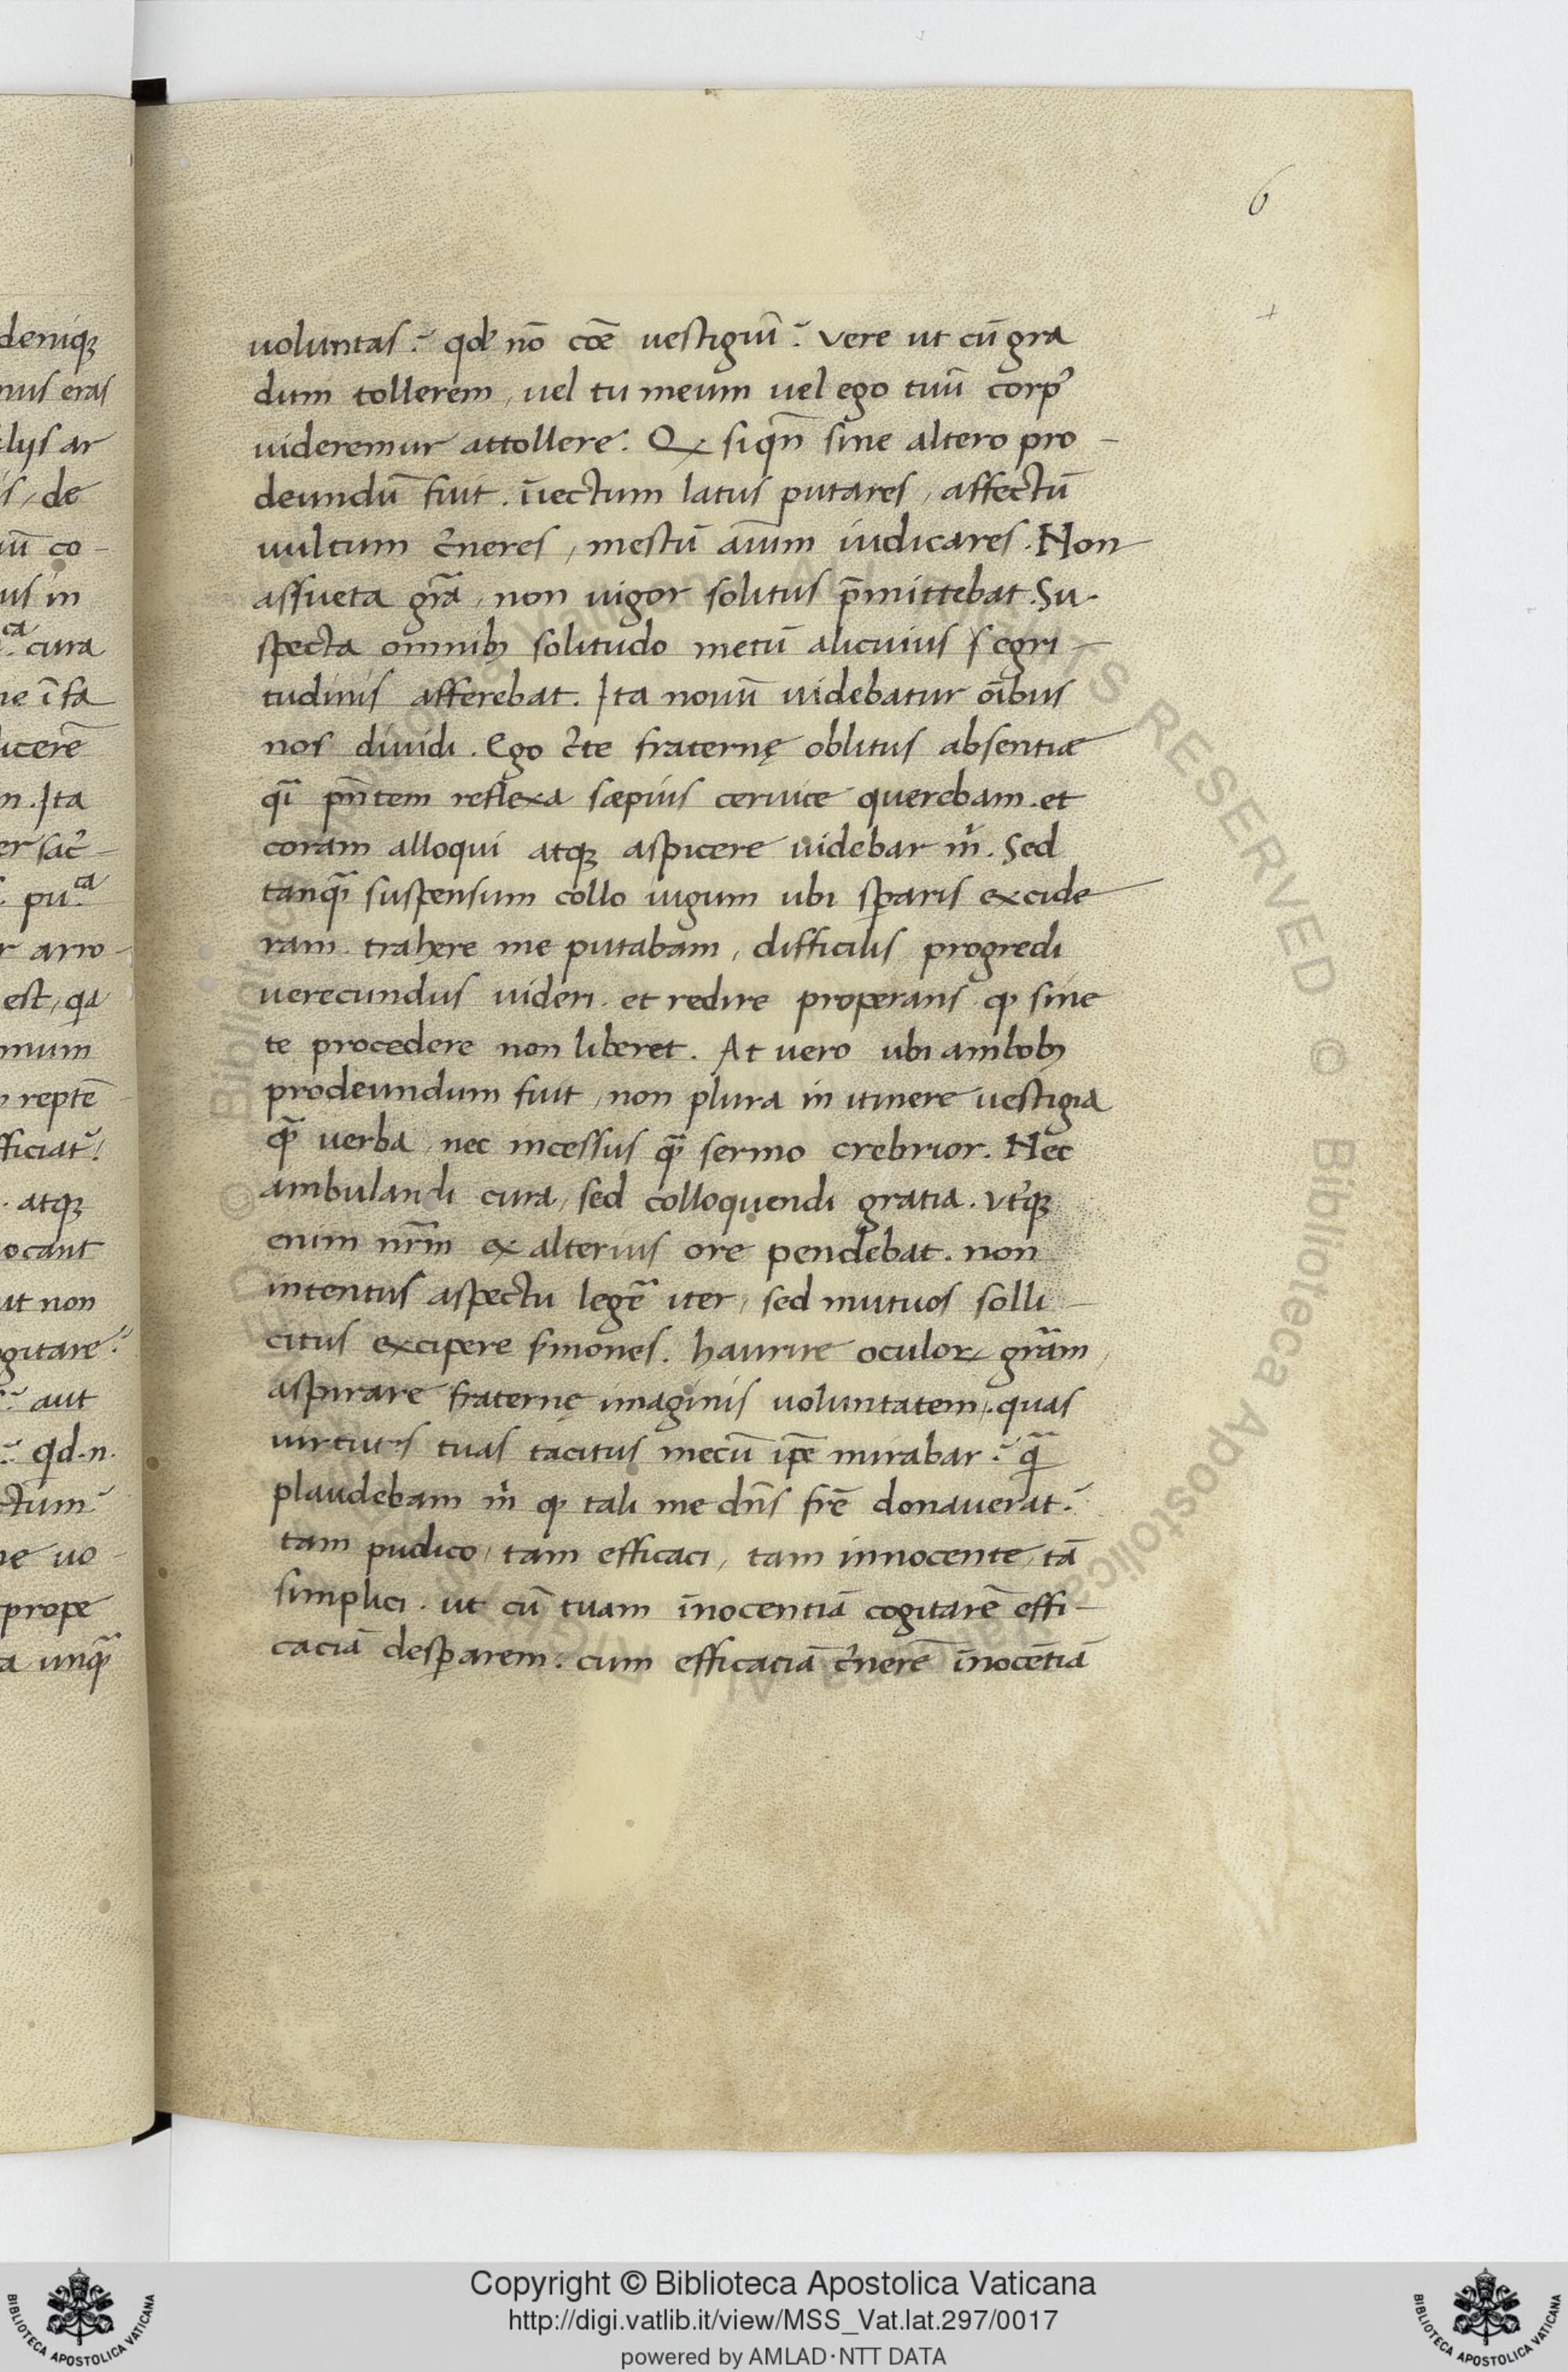 6
deniqꝫ
nus eras
lijs ar
is, de
uū co-
us in
cura
ne ī fa
icerē
n. Ita
er sac̄
pu.ᶜᵃ
r arro-
est, qa
mum
reptē
fficiat᷑!
. atqꝫ
ocant
ut non
gitare?
aut
qd. n.
ctum?
ne uo
prope
a unq̄
uoluntas? qd' nō cōe uestigiū? Vere ut cū gra
dum tollerem, uel tu meum uel ego tuū corp᾽
uideremur attollere. Qꝫ siqn̄ sine altero pro-
deundū fuit. īuectum latus putares, affectū
uultum c̄neres, mestū aīum iudicares. Non
assueta gr̄a, non uigor solitus p̄mittebat. Su-
specta omnibꝫ solitudo metū alicuius ſ egri-
tudinis afferebat. Ita nouū uidebatur oībus
nos diuidi. Ego c̄te fraternę oblitus absentiæ
qī pn̄tem reflexa sæpius ceruice querebam. et
coram alloqui atqꝫ aspicere uidebar m̄. Sed
tanq̄ suspensum collo iugum ubi sꝑaris excide
ram. trahere me putabam, difficilis progredi
uerecundus uideri. et redire properans. ꝙ sine
te procedere non liberet. At uero ubi ambobꝫ
prodeundum fuit, non plura in itinere uestigia
q̄ uerba, nec incessus q̄ sermo crebrior. Nec
ambulandi cura, sed colloquendi gratia. Vt᾽qꝫ
enim nr̄m ex alterius ore pendebat. non
intentus aspectu legē iter, sed mutuos solli-
citus excipere s̄mones. haurire oculoꝝ gr̄am,
aspirare fraternę imaginis uoluntatem. quas
uirtutes tuas tacitus mecū ip̄e mirabar? q̄
plaudebam m̄ ꝙ tali me dn̄s fr̄e donauerat?
tam pudico, tam efficaci, tam innocente, tā
simplici. ut cū tuam īnocentiā cogitarē effi-
caciā desꝑarem. cum efficaciā c̄nerē īnocētiā
© Biblioteca Apostolica Vaticana ALL RIGHTS RESERVED © Biblioteca Apostolica Vaticana ALL RIGHTS RESERVED
Copyright © Biblioteca Apostolica Vaticana
http://digi.vatlib.it/view/MSS_Vat.lat.297/0017
powered by AMLAD·NTT DATA
BIBLIOTECA APOSTOLICA VATICANA
BIBLIOTECA APOSTOLICA VATICANA